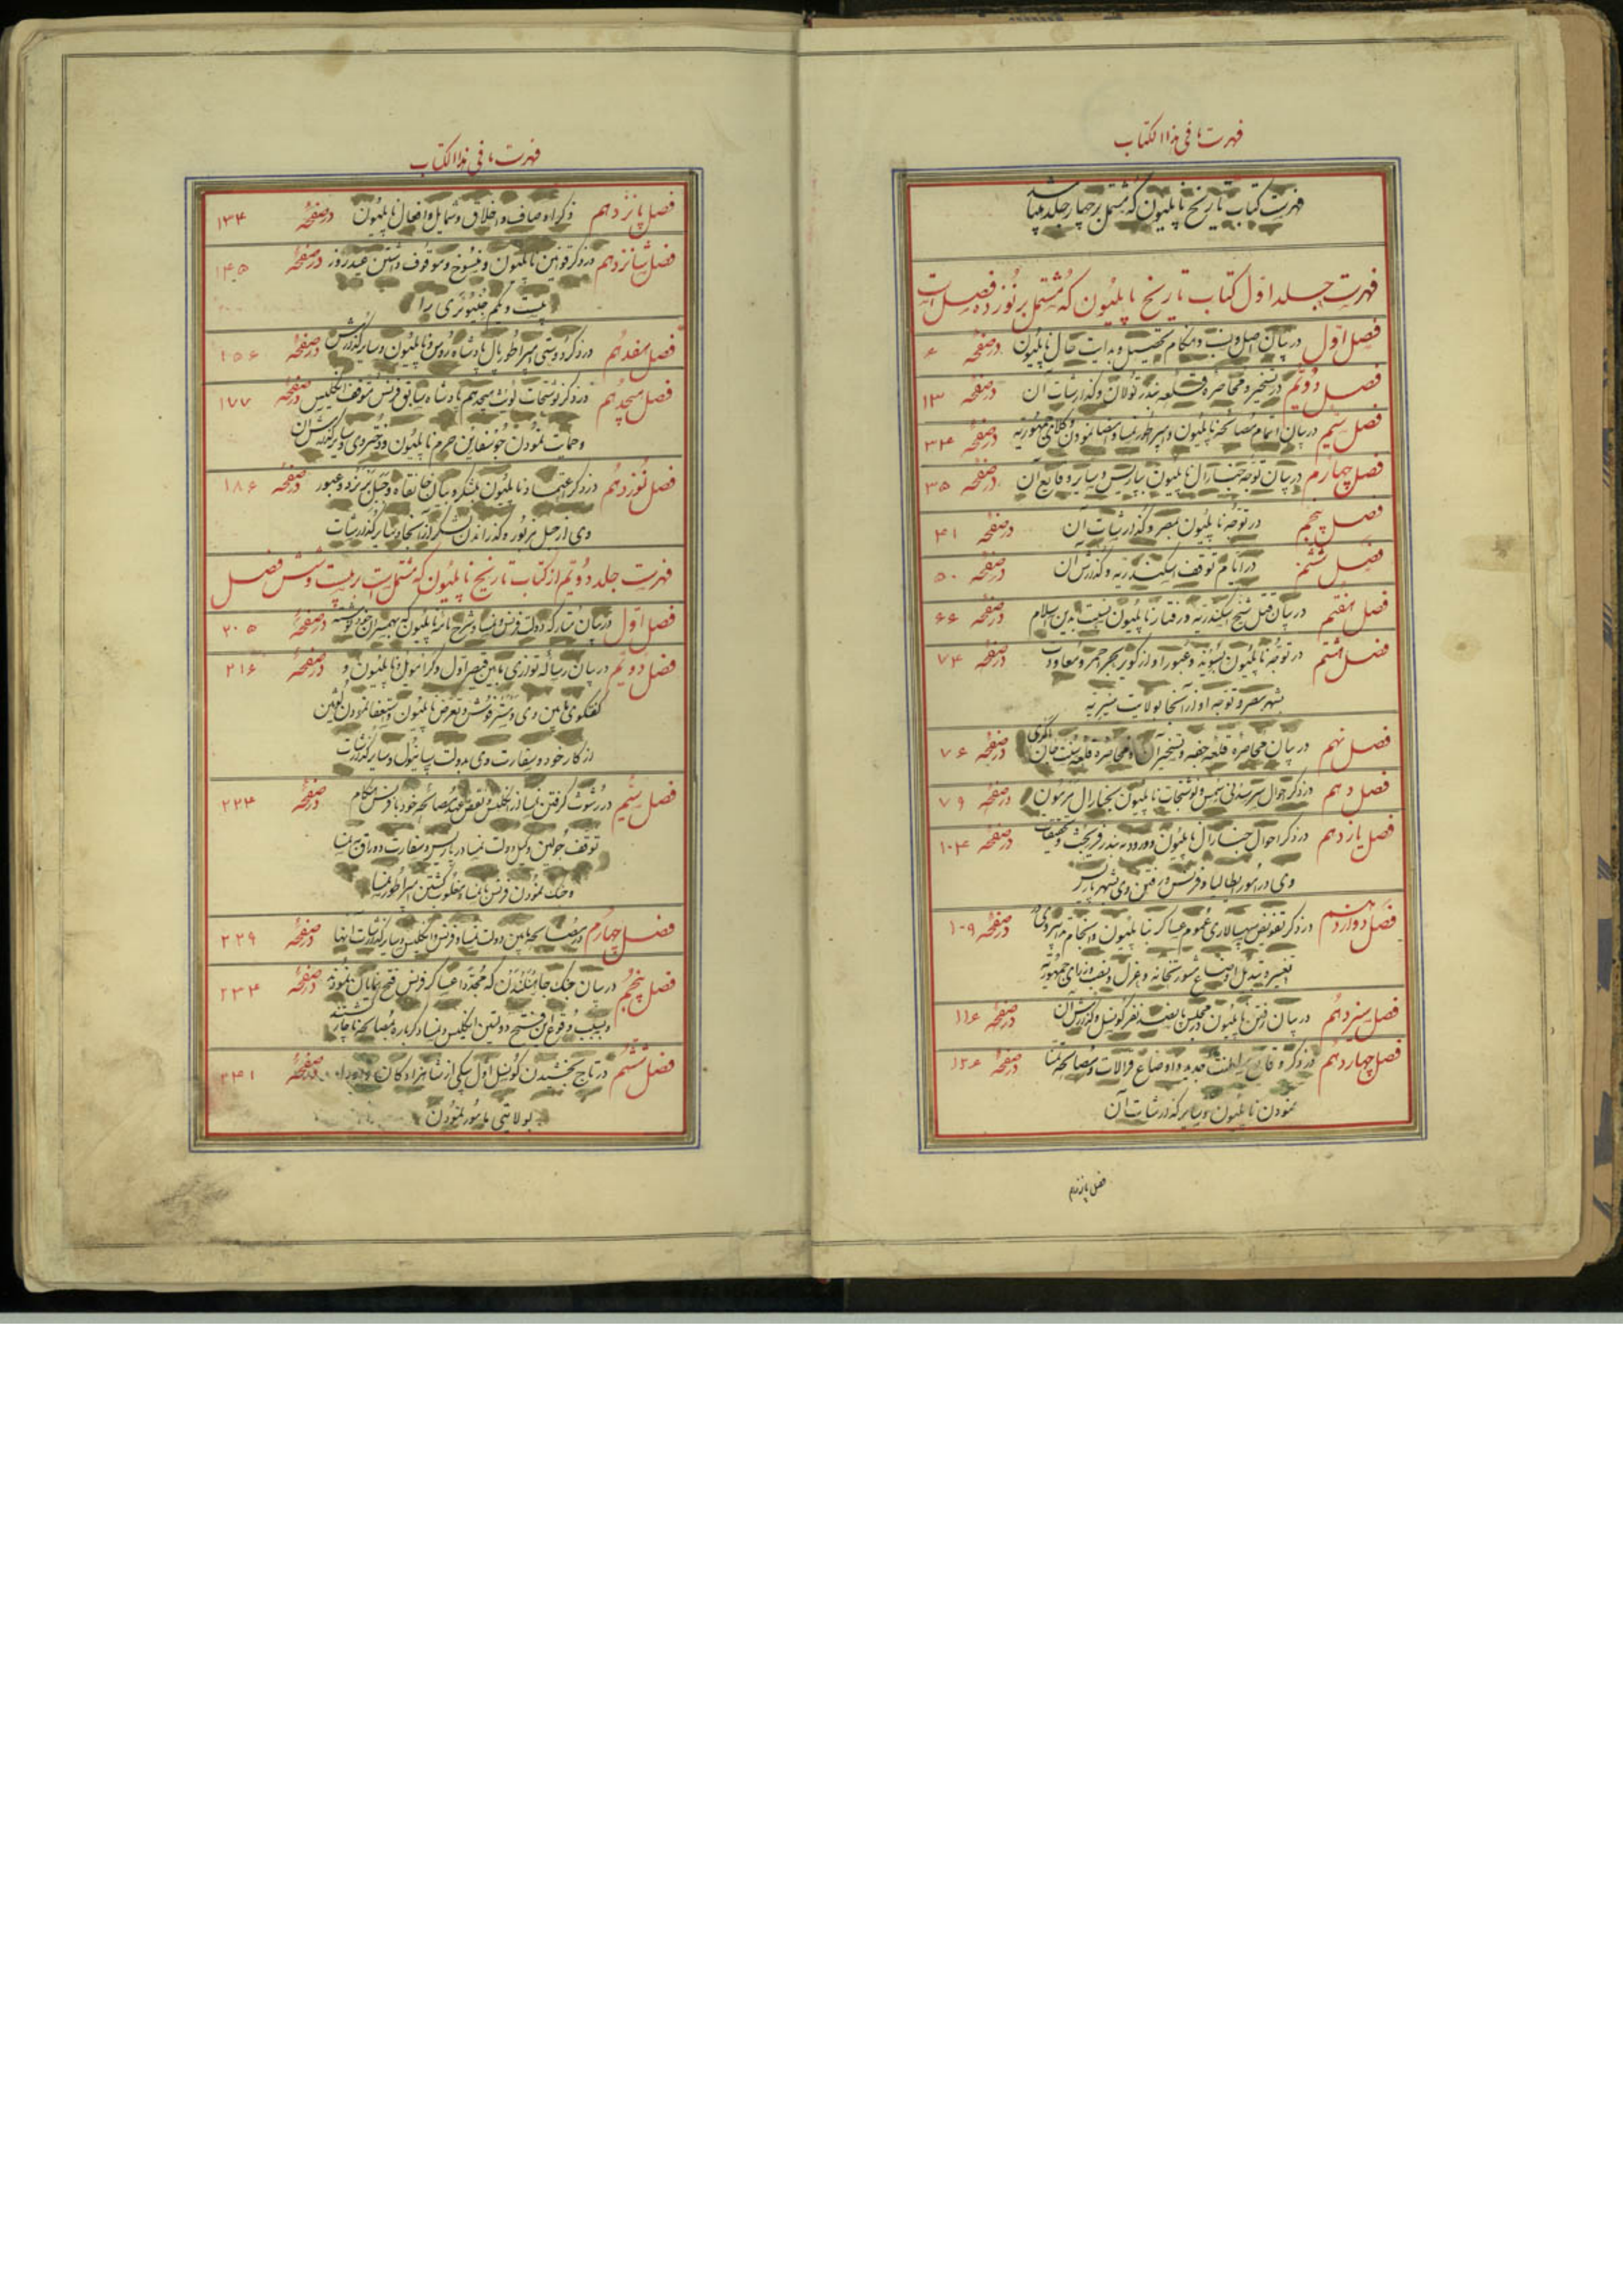 فهرست ما فی هذا الکتاب
فهرست کتاب تاریخ ناپلیون که مشتمل بر چهار جلد میباشد
فهرست جلد اول کتاب تاریخ ناپلیون که مشتمل بر نوزده فصل است
فصل اول در بیان اصل و نسب و هنگام تحصیل و بدایت حال ناپلیون در صفحهٔ ۶
فصل دویم در تسخیر و محاصره قلعه بندر تولان و گذارشات آن در صفحهٔ ۱۳
فصل سیم در بیان اتمام مصالحه ناپلیون و امپراطور نمسا و امضا نمودن وکلای جمهوریه در صفحهٔ ۳۴
فصل چهارم در بیان توجه جنارال ناپلیون بپاریس و سایر وقایع آن در صفحهٔ ۳۵
فصل پنجم در توجه ناپلیون بمصر و گذارشات آن در صفحهٔ ۴۱
فصل ششم در ایام توقف اسکندریه و گذارش آن در صفحهٔ ۵۰
فصل هفتم در بیان قتل شیخ اسکندریه و رفتار ناپلیون نسبت بدین اسلام در صفحهٔ ۶۶
فصل هشتم در توجه ناپلیون بسویذ و عبور او از کویر بحر احمر و معاودت در صفحهٔ ۷۴
بشهر مصر و توجه او از آنجا بولایت
فصل نهم در بیان محاصره قلعه و تسخیر آن و محاصره قلعه سنت جان در صفحهٔ ۷۶
فصل دهم در ذکر احوال سر سدنی سمس و نوشتجات ناپلیون بجنارال در صفحهٔ ۷۹
فصل یازدهم در ذکر احوال جنارال ناپلیون و ورود به بندر و تحقیقات در صفحهٔ ۱۰۴
وی در امور ایطالیا و فرنس و رفتن وی بشهر پاریس
فصل دوازدهم در ذکر تفویض سپهسالاری عموم عساکر بناپلیون و در صفحهٔ ۱۰۹
تغییر و تبدیل اوضاع مشورتخانه و عزل و نصب وزرای جمهوریه
فصل سیزدهم در بیان رفتن ناپلیون در مجلس پانصد نفر کونسل و گذارش آن در صفحهٔ ۱۱۶
فصل چهاردهم در ذکر وقایع سلطنت جدید و اوضاع و مصالحه تمنا در صفحهٔ ۱۲۶
نمودن ناپلیون و سایر گذارشات آن
فصل پانزدهم
فهرست ما فی هذا الکتاب
فصل پانزدهم ذکر اوصاف و اخلاق و شمایل و افعال ناپلیون در صفحهٔ ۱۳۴
فصل شانزدهم در ذکر قوانین ناپلیون و منسوخ و موقوف داشتن عید روز در صفحهٔ ۱۴۵
بیست و یکم جنیوئری را
فصل هفدهم در ذکر دوستی امپراطور پال پادشاه روس و ناپلیون و سایر گذارش در صفحهٔ ۱۵۶
فصل هیجدهم در ذکر نوشتجات لوئی هیجدهم پادشاه سابق فرنس متوقف انگلیس در صفحهٔ ۱۷۷
و حمایت نمودن جوسفاین حرم ناپلیون و دختر وی و سایر گذارش آن
فصل نوزدهم در ذکر اعتماد ناپلیون بلشکر و بیان خانقاه و جبل و عبور در صفحهٔ ۱۸۶
وی از جبل مزبور و گذراندن لشکر از آنجا و سایر گذارشات
فهرست جلد دویم از کتاب تاریخ ناپلیون که مشتمل است بر بیست و شش فصل
فصل اول در بیان متارکه دولت فرنس و نمسا و شرح نامه ناپلیون که بهمسران خود نوشته در صفحهٔ ۲۰۵
فصل دویم در بیان رساله توزری مابین قیصر اول و کرامول و ناپلیون و در صفحهٔ ۲۱۶
گفتگوی مابین وی و مستر فوکس و تعرض ناپلیون و استعفا نمودن لوئین
از کار خود و سفارت وی بدولت سپانیول و سایر گذارشات
فصل سیم در رشوت گرفتن نمسا از انگلیس و نقض عهد مصالحه خود با فرنس هنگام در صفحهٔ ۲۲۴
توقف وکیل دولت نمسا در پاریس و سفارت
و جنگ نمودن فرنس با نمسا و مغلوب گشتن امپراطور نمسا
فصل چهارم در مصالحه مابین دولت نمسا و فرنس و انگلیس و سایر گذارشات آنها در صفحهٔ ۲۲۹
فصل پنجم در بیان جنگ که مجددا عساکر فرنس فتح نمایان نمودند در صفحهٔ ۲۳۴
و بسبب وقوع این فتح دولتین انگلیس و نمسا دگرباره بمصالحه ناچار گشتند
فصل ششم در تاج بخشیدن کونسل اول بیکی از شاهزادگان در صفحهٔ ۲۴۱
بولایتی مامور نمودن